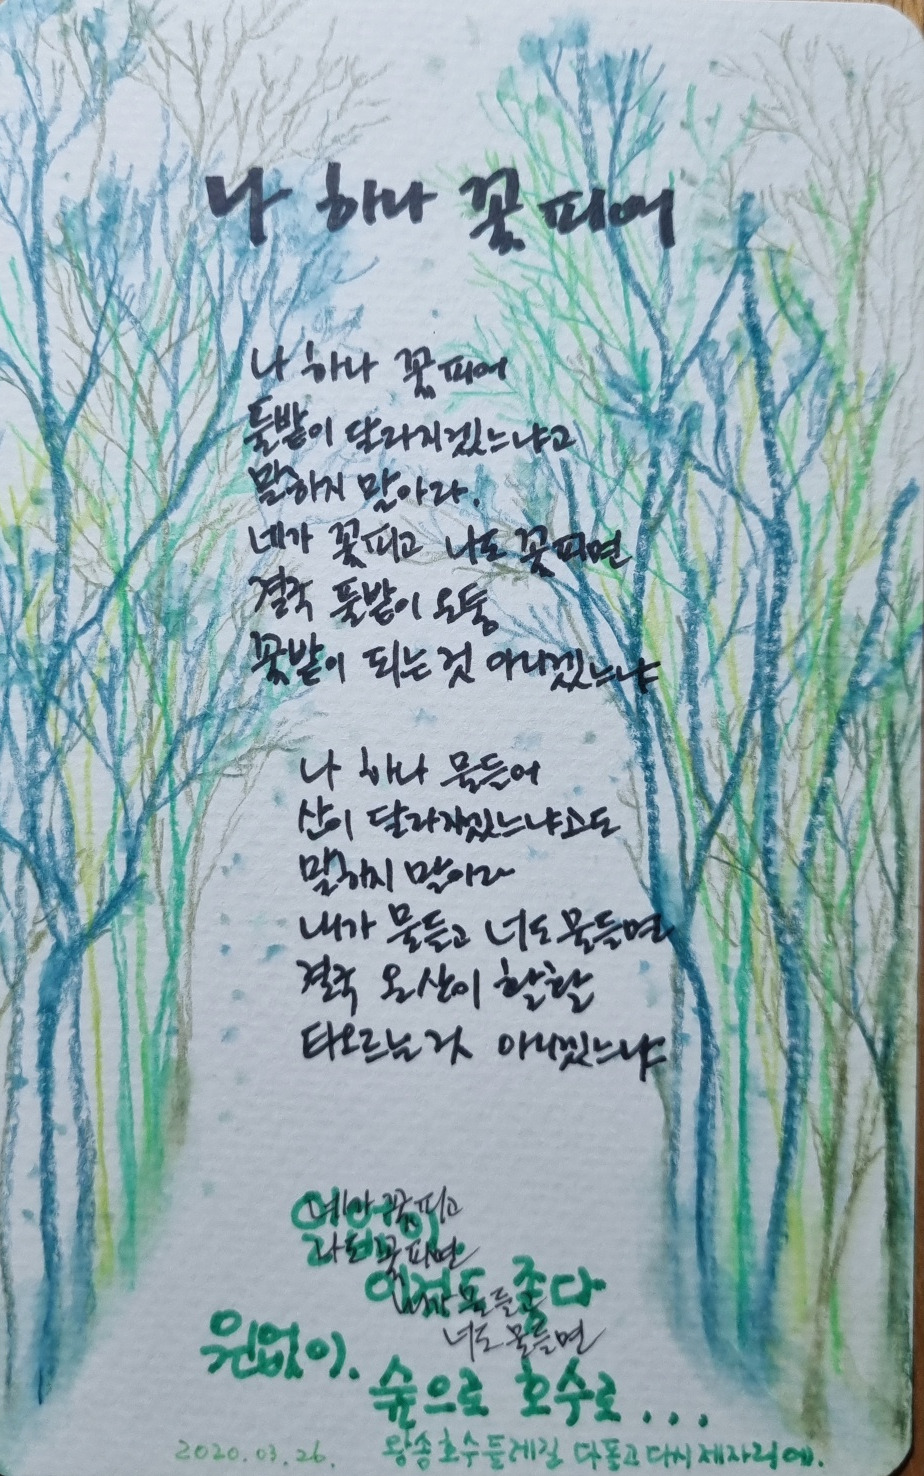 나 하나 꽃 피어
나 하나 꽃 피어
풀밭이 달라지겠느냐고
말하지 말아라.
네가 꽃 피고 나도 꽃 피면
결국 풀밭이 온통
꽃밭이 되는 것 아니겠느냐
나 하나 물들어
산이 달라지겠느냐고도
말하지 말아라
내가 물들고 너도 물들면
결국 온 산이 활활
타오르는 것 아니겠느냐
네가 꽃 피고
나도 꽃 피면
물들고
너도 물들면
좋다
원없이.
숲으로 호수로...
2020.03.26. 왕송호수둘레길 다 돌고 다시 제자리에.